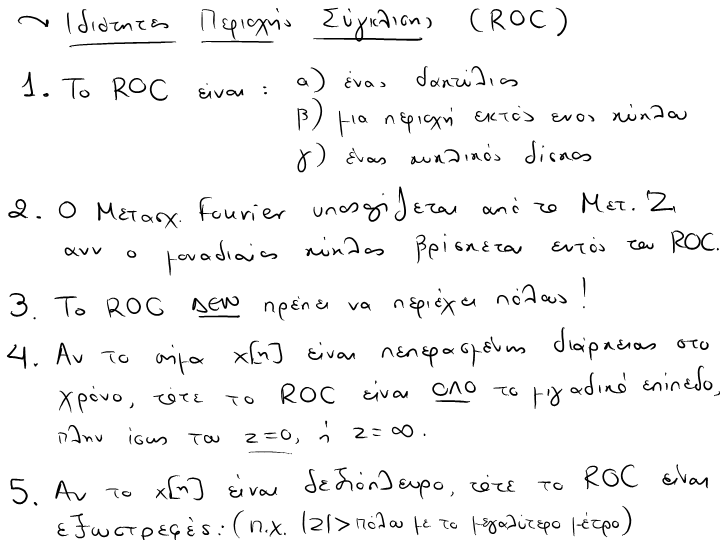 ~ Ιδιότητες Περιοχής Σύγκλισης (ROC)
1. Το ROC είναι : α) ένας δακτύλιος
β) μια περιοχή εκτός ενος κύκλου
γ) ένας κυκλικός δίσκος
2. Ο Μετασχ. Fourier υπολογίζεται από το Μετ. Z
ανν ο μοναδιαίος κύκλος βρίσκεται εντός του ROC.
3. Το ROC ΔΕΝ πρέπει να περιέχει πόλους!
4. Αν το σήμα x[n] είναι πεπερασμένης διάρκειας στο
χρόνο, τότε το ROC είναι ΟΛΟ το μιγαδικό επίπεδο,
πλην ίσως του z=0, ή z=∞.
5. Αν το x[n] είναι δεξιόπλευρο, τότε το ROC είναι
εξωστρεφές: (π.χ. |z|> πόλου με το μεγαλύτερο μέτρο)